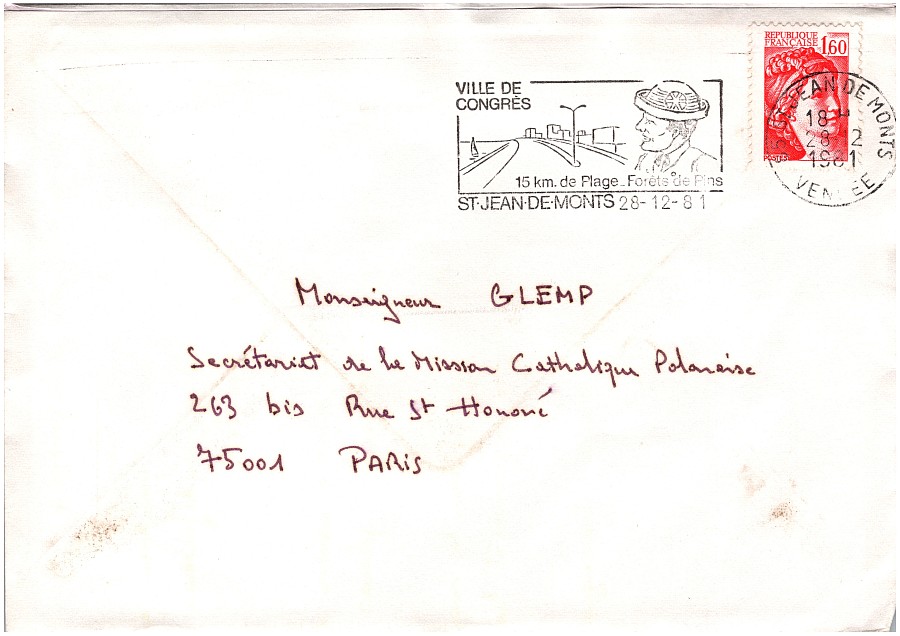 VILLE DE
CONGRÈS
15 km. de Plage - Forêts de Pins
ST-JEAN-DE-MONTS 28-12-81
REPUBLIQUE
FRANÇAISE 1,60
POSTES
JEAN DE MONTS
18 H
28 12
1981
VENDEE
Monseigneur GLEMP
Secrétariat de la Mission Catholique Polonaise
263 bis Rue St Honoré
75001 PARIS